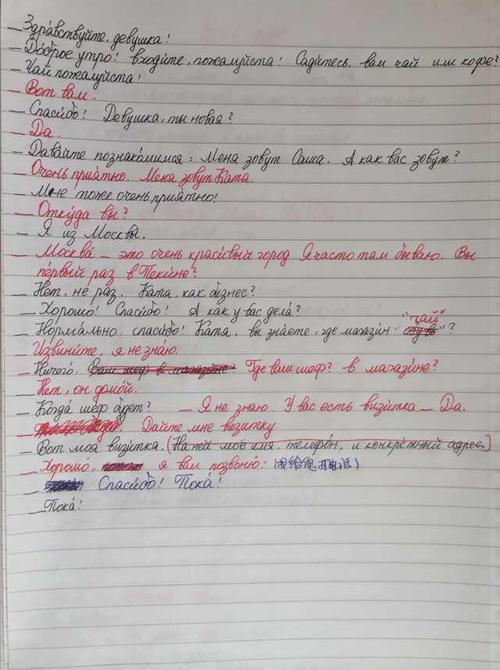 — Здра́вствуйте, девушка!
— До́брое утро! входи́те, пожа́луйста! Сади́тесь, вам чай или кофе?
— Чай пожалуйста!
— Вот вам.
— Спаси́бо! Девушка, ты новая?
— Да.
— Дава́йте познако́мимся: Меня зовут Саша. А как вас зовут?
— Очень прия́тно. Меня зовут Катя
— Мне тоже очень прия́тно!
— Отку́да вы?
— Я из Москвы́.
— Москва́ — это очень краси́вый город Я часто там быва́ю. Вы
первый раз в Пеки́не?
— Нет, не раз. Катя, как бизнес?
— Хорошо! Спаси́бо! А как у вас дела?
"чай"
— Норма́льно спасибо! Катя, вы зна́ете, где магази́н ?
— Извини́те, я не зна́ю.
— Ничего. Ваш шеф в магази́не Где ваш шеф? в магази́не?
— Нет, он домо́й.
— Когда шеф будет? — Я не знаю. У вас есть визи́тка — Да.
Дайте мне визитку
— Вот моя визи́тка. [На ней моё имя телефо́н, и адрес.]
— Хорошо, я вам позвоню́! (我给您打电话)
— Спаси́бо! Пока́!
— Пока́!